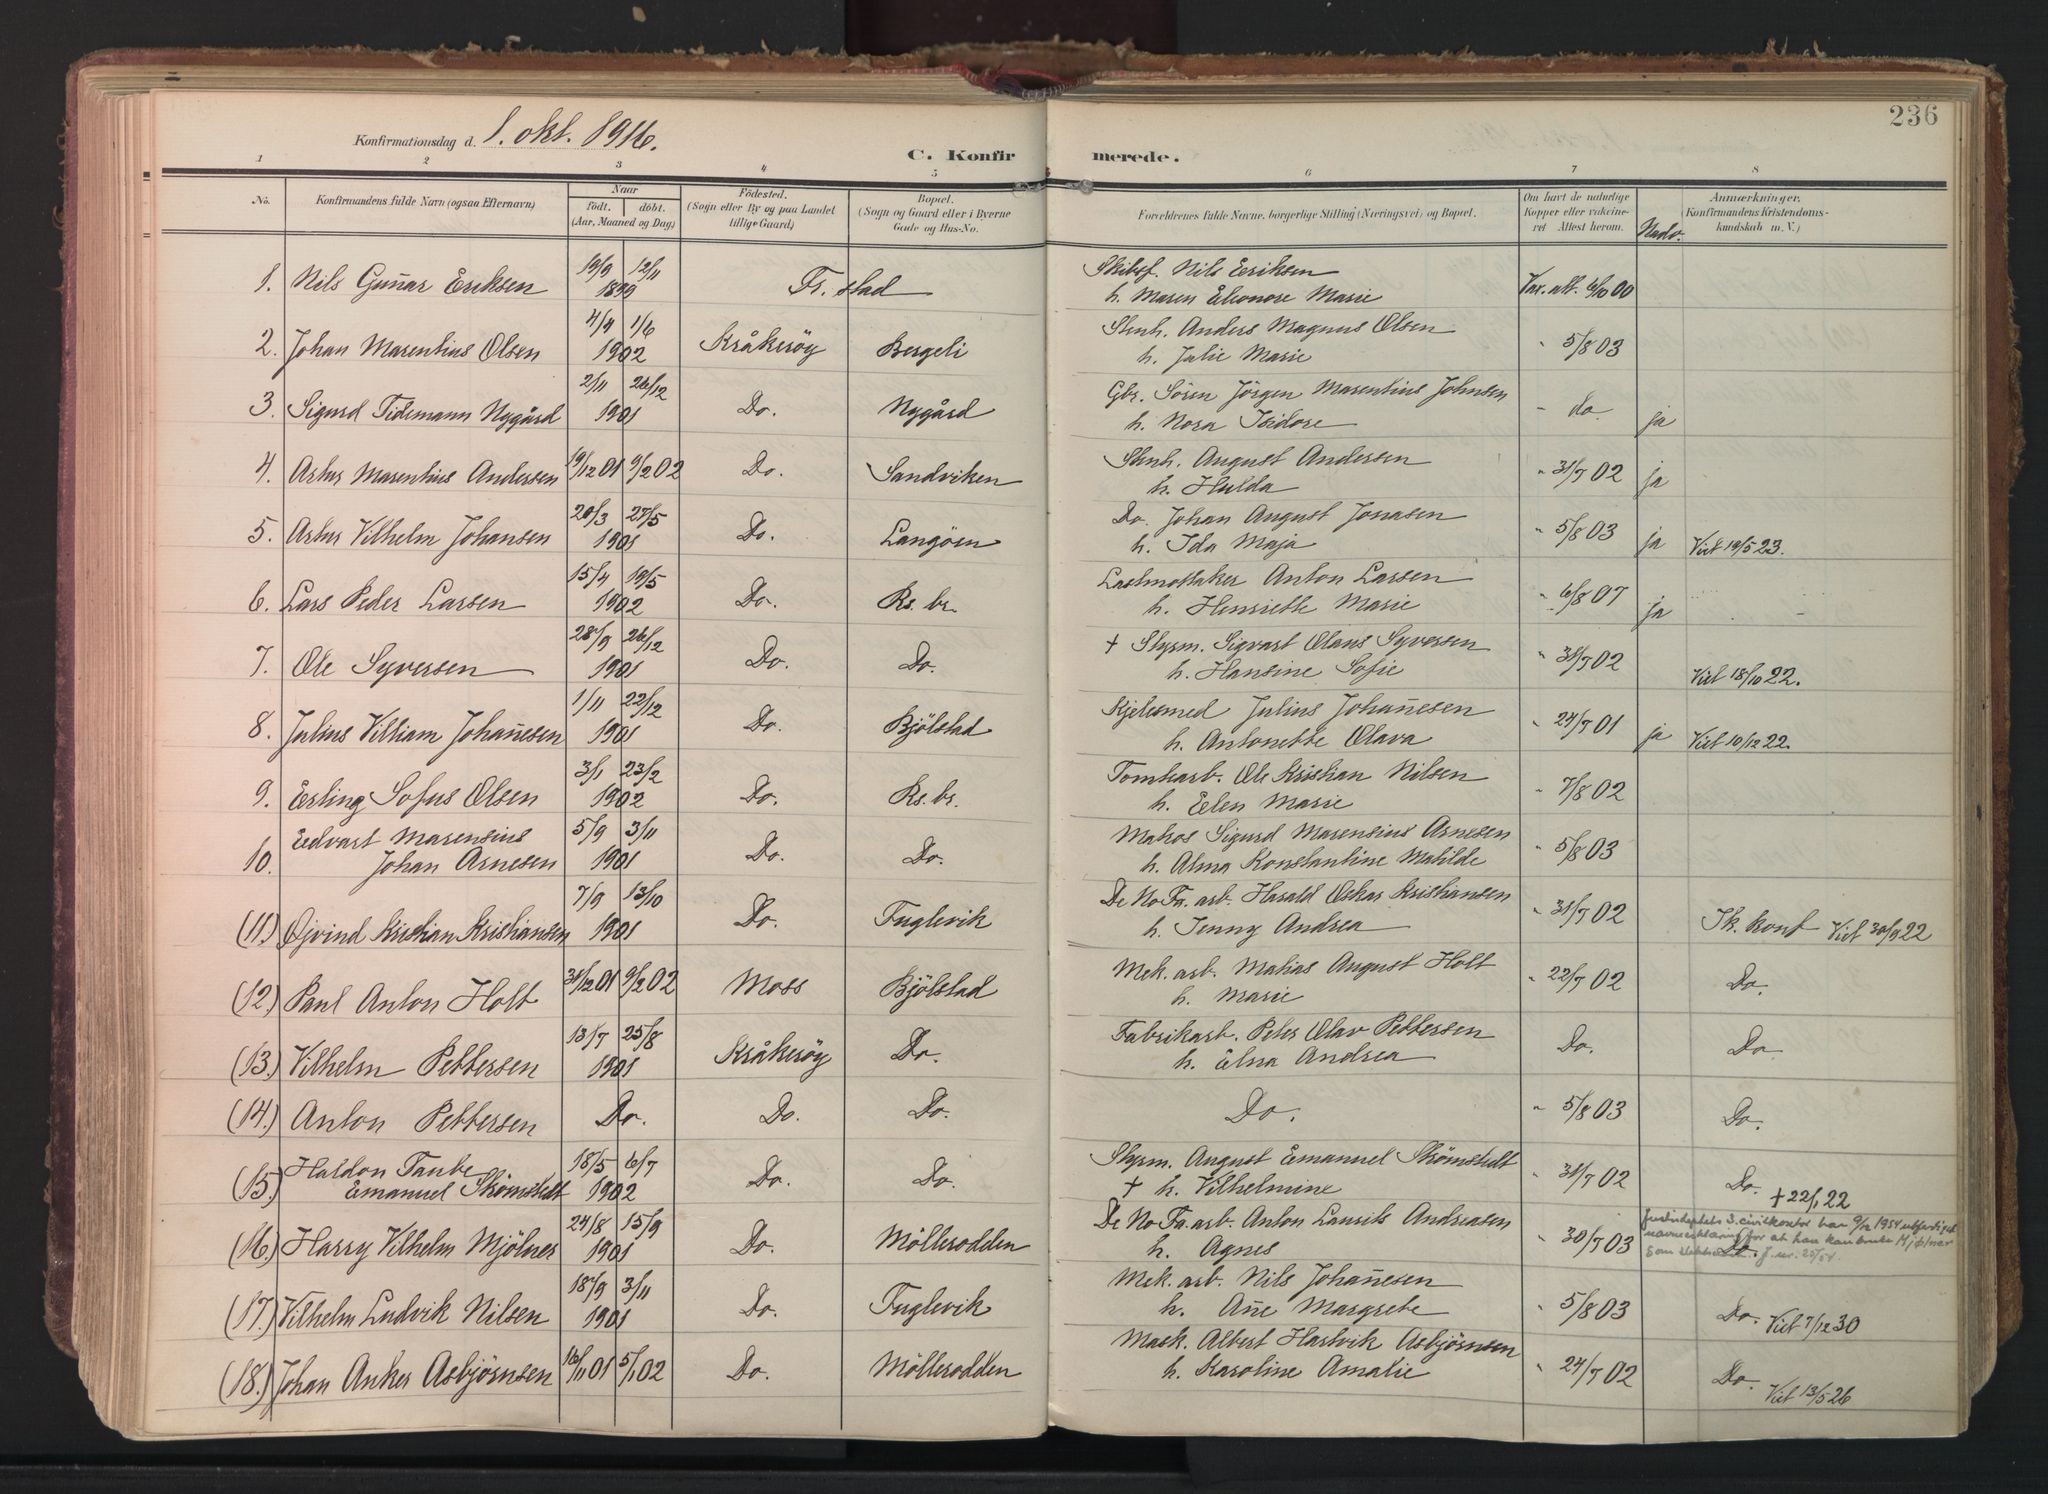 236
Konfirmationsdag d. 1. okt. 1916.
C. Konfirmerede.
1 2 3 4 5 6 7 8
No. Konfirmandens fulde Navn (ogsaa Efternavn) Naar födt. döbt. (Aar, Maaned og Dag) Födested. (Sogn eller By og paa Landet tillige Gaard) Bopæl. (Sogn og Gaard eller i Byerne Gade og Hus-No. Forældrenes fulde Navne, borgerlige Stilling (Næringsvei) og Bopæl. Om havt de naturlige Kopper eller vakcineret Attest herom. Nadv. Anmærkninger. Konfirmandens Kristendomskundskab m. V.)
1. Nils Gun̄ar Eriksen 19/9 12/11 1899 Fr. stad Skibsf. Nils Eriksen Vax. att. 6/10 00
h. Maren Eleonore Marie
2. Johan Marentius Olsen 4/4 1/6 1902 Kråkeröy Bergeli Stenh. Anders Magnus Olsen " 5/8 03
h. Julie Marie
3. Sigurd Tidemann Nygård 2/11 26/12 1901 Do. Nygård Gbr. Sören Jörgen Marentius Johnsen - do. ja
h. Nora Isidore
4. Artur Marentius Andersen 19/12 01 9/2 02 Do. Sandviken Stenh. August Andersen " 31/7 02 ja
h. Hulda
5. Artur Vilhelm Johansen 20/3 27/5 1901 Do. Langöen Do. Johan August Jonasen " 5/8 03 ja Viet 19/5 23.
h. Ida Maja
6. Lars Peder Larsen 15/4 19/5 1902 Do. Rs. br. Lastmottaker Anton Larsen " 6/8 07 ja
h. Henriette Marie
7. Ole Syversen 28/9 26/12 1901 Do. Do. + Styrm. Sigvart Olaus Syversen " 31/7 02 Viet 18/10 22.
h. Hansine Sofie
8. Julius Villiam Johan̄esen 1/11 22/12 1901 Do. Bjölstad Kjelesmed Julius Johan̄esen " 24/7 01 ja Viet 10/12 22.
h. Antonette Olava
9. Erling Sofus Olsen 3/1 23/2 1902 Do. Rs. br. Tomtearb. Ole Kristian Nilsen " 7/8 02
h. Elen Marie
10. Edvart Marensius Johan Arnesen 5/9 3/11 1901 Do. Do. Matros Sigurd Marensius Arnesen " 5/8 03
h. Alma Konstantine Matilde
(11.) Øjvind Kristian Kristiansen 7/9 13/10 1901 Do. Fuglevik De No Fa. arb. Harald Oskar Kristiansen " 31/7 02 Sk. konf Viet 30/9 22
h. Jenny Andrea
(12.) Paul Anton Holt 31/12 01 9/2 02 Moss Bjölstad Mek. arb. Matias August Holt " 22/7 02 Do.
h. Marie
(13.) Vilhelm Pettersen 13/7 25/8 1901 Kråkeröy Do. Fabrikarb. Peter Olav Pettersen Do. Do.
h. Elna Andrea
(14.) Anton Pettersen Do. Do. Do. Do. " 5/8 03 Do.
(15.) Haldon Taube Emanuel Strömstedt 18/5 6/7 1902 Do. Do. Styrm. August Emanuel Strömstedt " 31/7 02 Do. + 22/1 22
+ h. Vilhelmine
(16.) Harry Vilhelm Mjölner 24/8 15/9 1901 Do. Möllerodden De No Fa. arb. Anton Laurits Andreasen " 30/7 03 Do.
h. Agnes
Justisdeptets 3. civilkontor har 9/2 1954 utferdiget
navneerklæring for at han kan bruke Mjølner
som slektsnavn. J. nr. 25/54
(17.) Vilhelm Ludvik Nilsen 18/9 3/11 1901 Do. Fuglevik Mek. arb. Nils Johan̄esen " 5/8 03 Do. Viet 7/12 30
h. An̄e Margrete
(18.) Johan Anker Asbjörnsen 16/11 01 5/1 02 Do. Möllerodden Mask. Albert Hartvik Asbjörnsen " 24/7 02 Do. Viet 13/5 26
h. Karoline Amalie